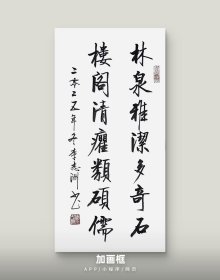 林泉雅潔多奇石
樓閣清癯類碩儒
二零二五年冬李志洲书
加画框
APP|小程序|网页